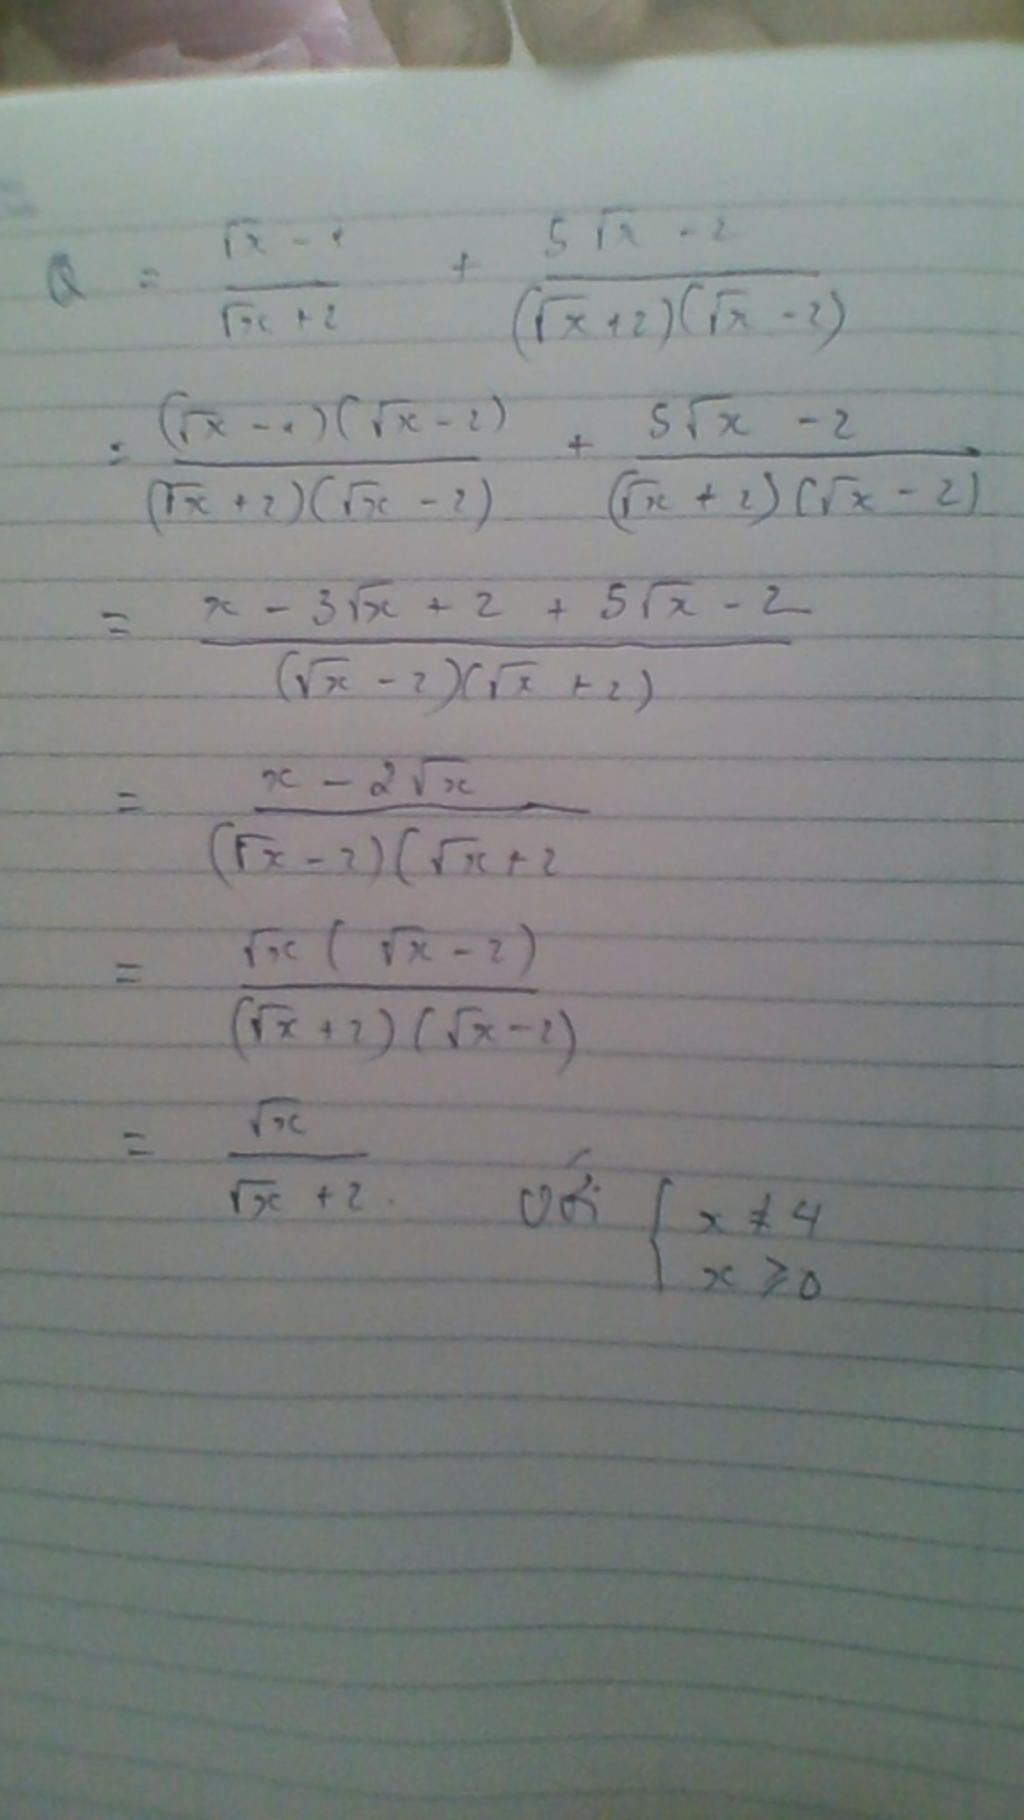 Q = (√x - 1)/(√x + 2) + (5√x - 2)/((√x + 2)(√x - 2))
= ((√x - 1)(√x - 2))/((√x + 2)(√x - 2)) + (5√x - 2)/((√x + 2)(√x - 2))
= (x - 3√x + 2 + 5√x - 2)/((√x - 2)(√x + 2))
= (x - 2√x)/((√x - 2)(√x + 2
= (√x(√x - 2))/((√x + 2)(√x - 2))
= √x/(√x + 2). với { x ≠ 4
x ⩾ 0